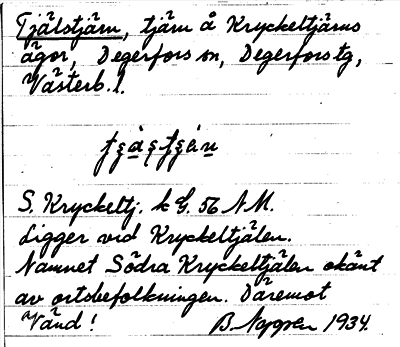 Tjälstjärn, tjärn å Kryckeltjärns
ägor, Degerfors sn, Degerfors tg,
Västerb. l.
S. Kryckeltj. k G. 56 NM.
Ligger vid Kryckeltjälen.
Namnet Södra Kryckeltjälen okänt
av ortsbefolkningen. Däremot
Vänd!
1934.